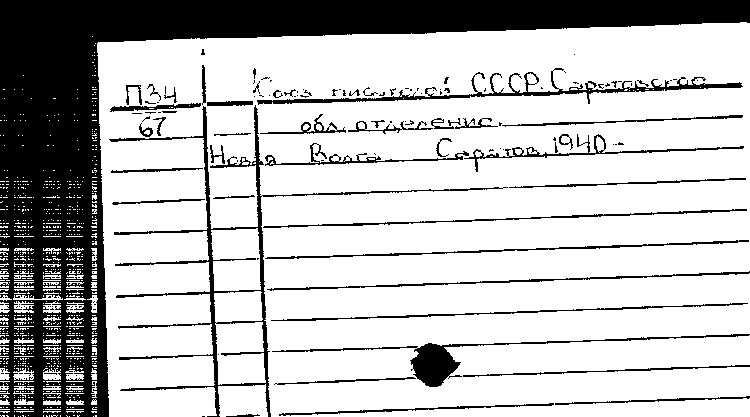 П34 Союз писателей СССР. Саратовское
67 обл. отделение.
Новая Волга. Саратов, 1940 -